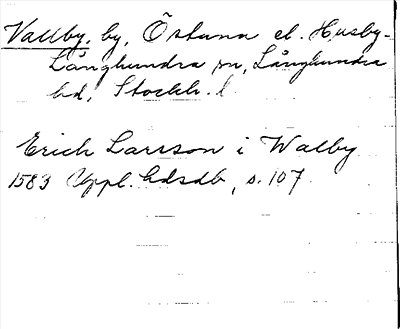 Vallby, by, Östuna el. Husby-
Långhundra sn, Långhundra
hd, Stockh. l.
Erich Larsson i Walby
1583 Uppl. hdsdb, s. 107